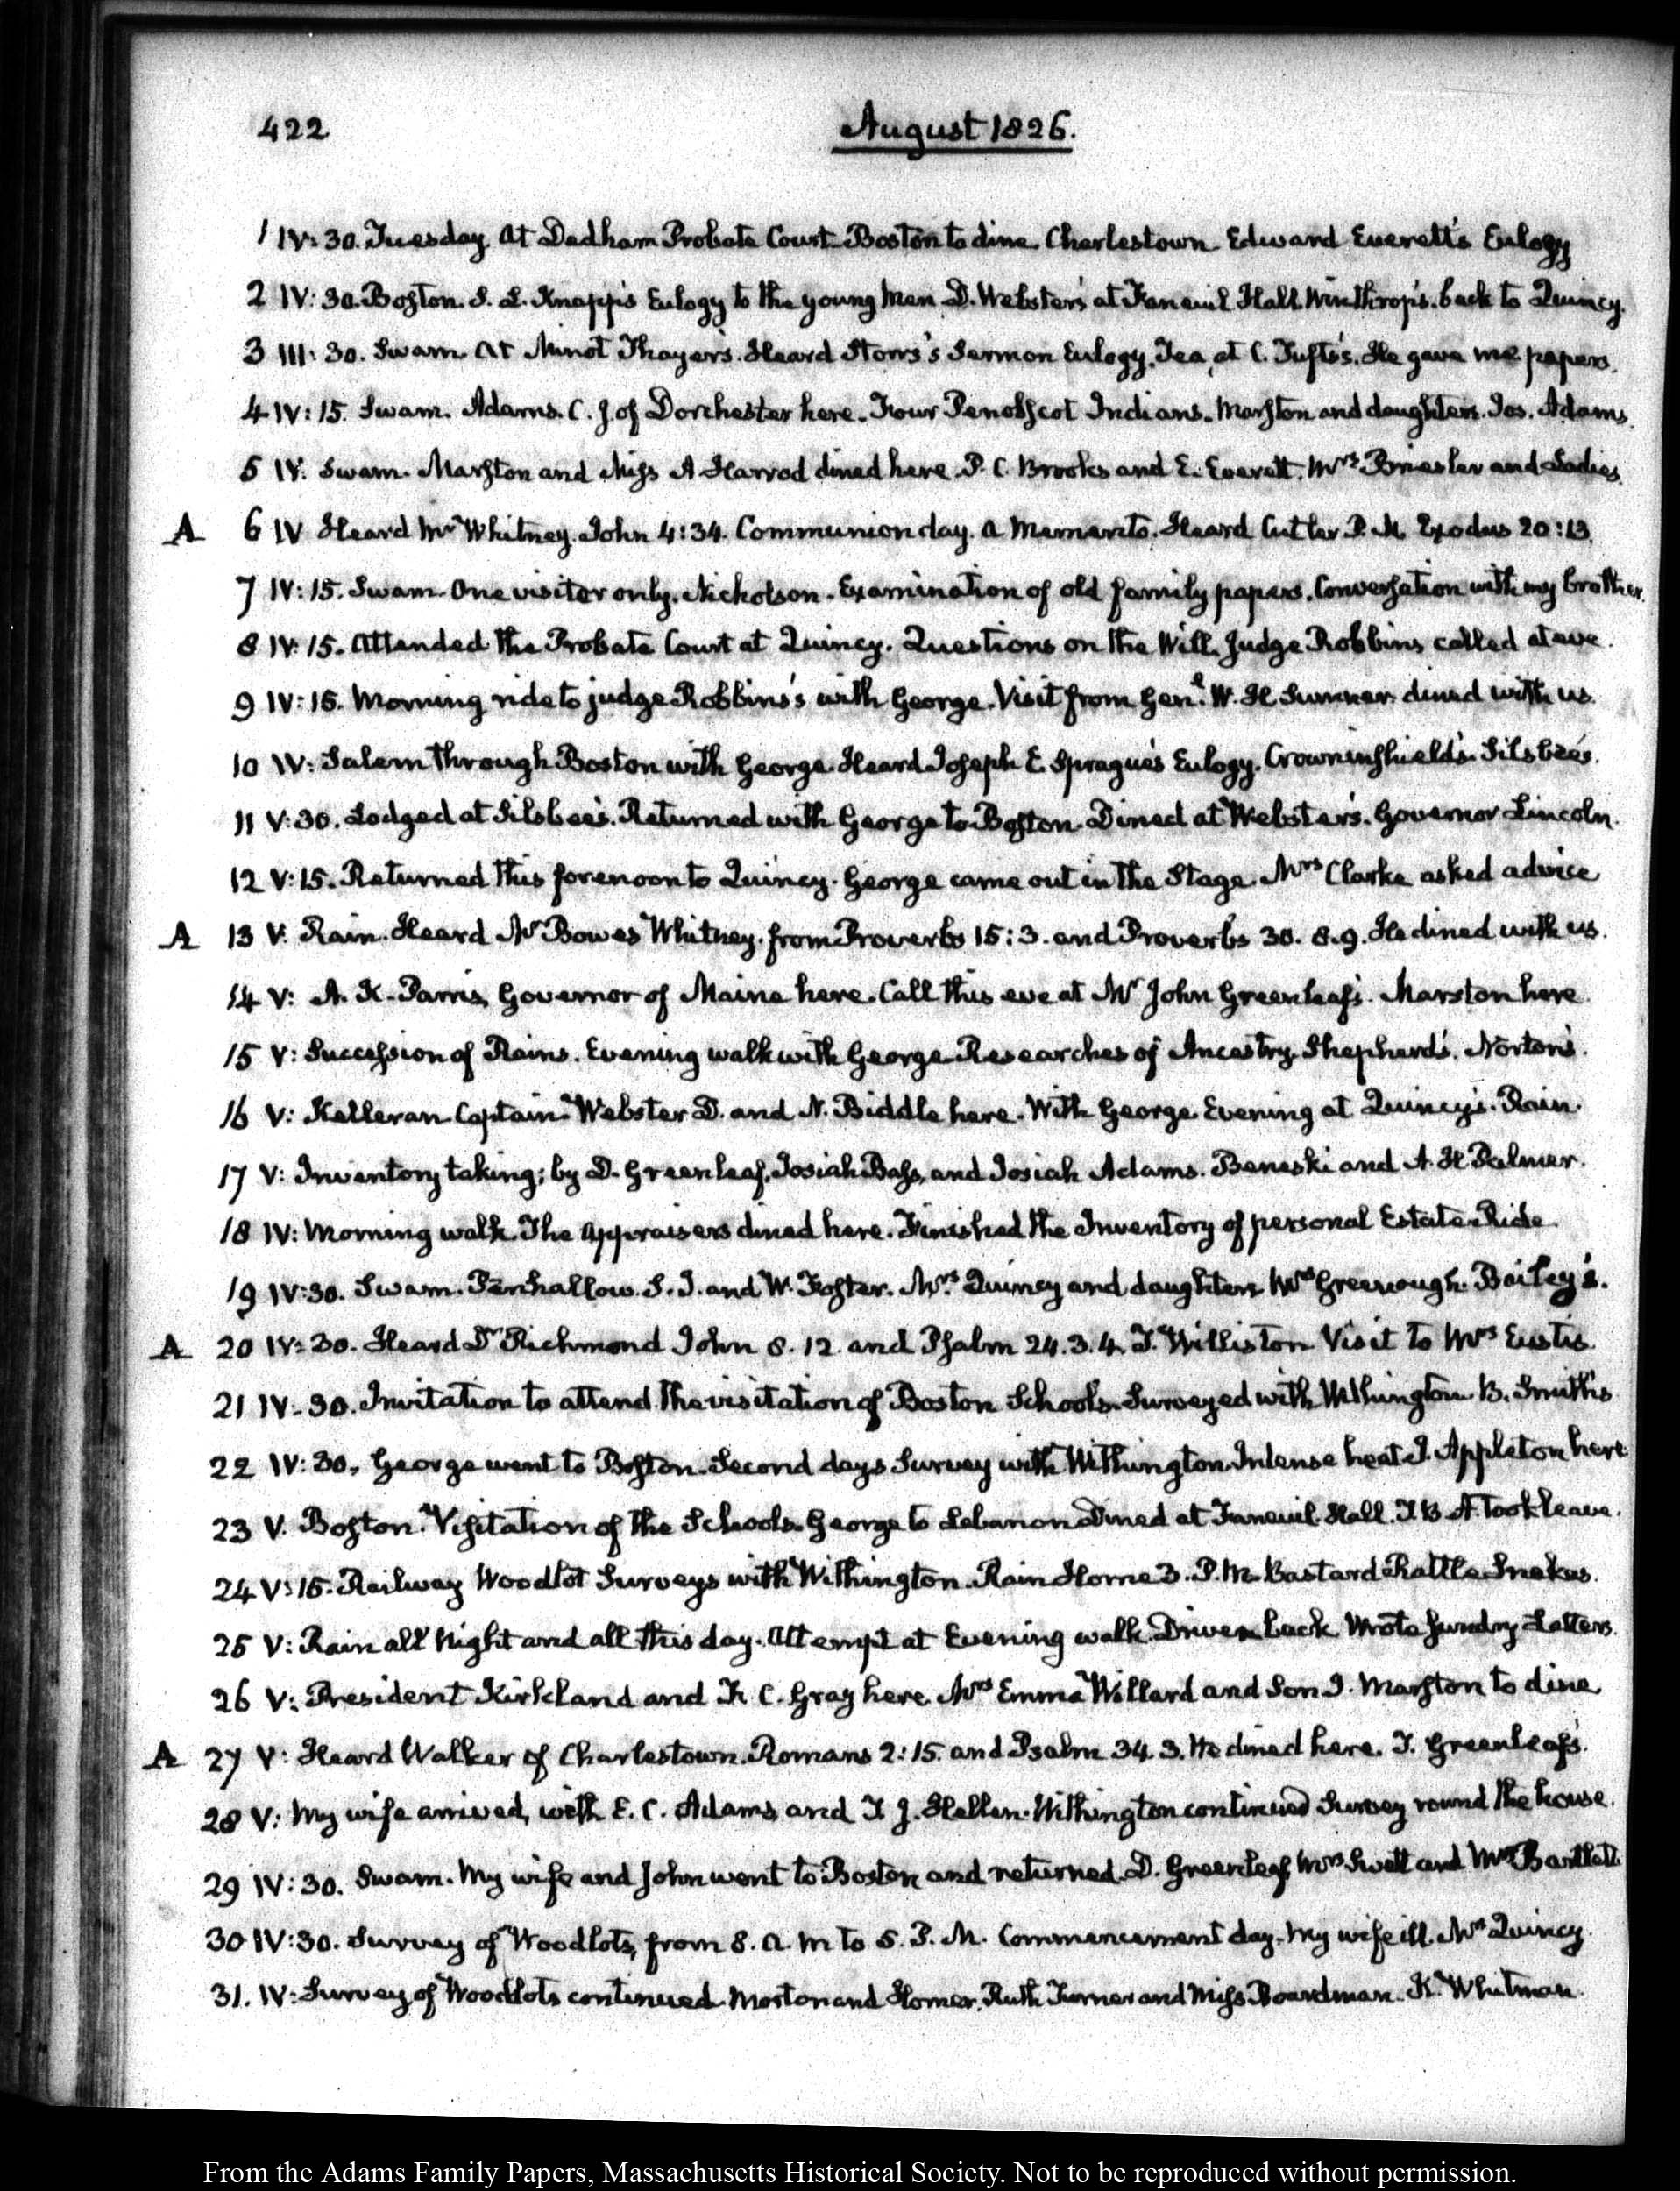 422
August 1826.
1 IV:30. Tuesday. At Dedham Probate Court. Boston to dine. Charlestown. Edward Everett's Eulogy
2 IV:30. Boston. S. L. Knapp's Eulogy to the young Men. D. Webster's at Faneuil Hall. Winthrop's. back to Quincy.
3 III:30. Swam. At Minot Thayer's. Heard Storrs's Sermon Eulogy. Tea at C. Tufts's. He gave me papers.
4 IV:15. Swam. Adams. C. J. of Dorchester here. Four Penobscot Indians. Marston and daughters. Jos. Adams.
5 IV. Swam. Marston and Miss A Harrod dined here. P. C. Brooks and E. Everett. Mrs Briesler and Ladies.
A 6 IV Heard Mr Whitney. John 4:34. Communion day. a Memento. Heard Cutler P. M. Exodus 20:13.
7 IV:15. Swam. One visiter only. Nicholson. Examination of old family papers. Conversation with my brother.
8 IV:15. Attended the Probate Court at Quincy. Questions on the Will. Judge Robbins called at eve.
9 IV:15. Morning ride to judge Robbins's with George. Visit from Genl. W. H Sumner. dined with us.
10 IV: Salem through Boston with George. Heard Joseph E. Sprague's Eulogy. Crowninshield's. Silsbee's.
11 V:30. Lodged at Silsbee's. Returned with George to Boston. Dined at Webster's. Governor Lincoln.
12 V:15. Returned this forenoon to Quincy. George came out in the Stage. Mrs Clarke asked advice
A 13 V. Rain. Heard Mr Bowes Whitney. from Proverbs 15:3. and Proverbs 30. 8.9. He dined with us.
14 V: A. K. Parris, Governor of Maine here. Call this eve at Mr John Greenleaf's. Marston here.
15 V: Succession of Rains. Evening walk with George. Researches of Ancestry. Shepherd's. Norton's.
16 V: Kelleran Captain. Webster D. and N. Biddle here. With George Evening at Quincy's. Rain.
17 V: Inventory taking; by D. Greenleaf, Josiah Bass, and Josiah Adams. Beneski and A. H Palmer.
18 IV: Morning walk. The Appraisers dined here. Finished the Inventory of personal Estate. Ride.
19 IV:30. Swam. Penhallow. S. J. and W. Foster. Mrs. Quincy and daughters Mrs Greenough. Bailey's.
A 20 IV:30. Heard Dr Richmond John 8. 12. and Psalm 24. 3. 4. T. Williston. Visit to Mrs Eustis.
21 IV:30. Invitation to attend the visitation of Boston Schools. Surveyed with Withington. B. Smith's
22 IV:30. George went to Boston. Second days Survey with Withington. Intense heat. J. Appleton here
23 V. Boston. Visitation of the Schools. George to Lebanon. Dined at Faneuil Hall. T. B. A. took leave.
24 V:15. Railway Woodlot Surveys with Withington. Rain. Home 3. P. M. Bastard Rattle Snakes.
25 V: Rain all Night and all this day. Attempt at Evening walk. Driven back. Wrote sundry Letters.
26 V: President Kirkland and F. C. Gray here. Mrs Emma Willard and Son. J. Marston to dine
A 27 V: Heard Walker of Charlestown. Romans 2:15. and Psalm 34. 3. He dined here. T. Greenleaf's.
28 V: My wife arrived, with E. C. Adams and T J. Hellen. Withington continued Survey round the house.
29 IV:30. Swam. My wife and John went to Boston and returned. D. Greenleaf Mrs Swett and Mrs Bartlett
30 IV:30. Survey of Woodlots, from 8. A. M to 5. P. M. Commencement day. My wife ill. Mrs Quincy.
31. IV: Survey of Woodlots continued. Morton and Homer. Ruth Turner and Miss Boardman. K. Whitman.
From the Adams Family Papers, Massachusetts Historical Society. Not to be reproduced without permission.